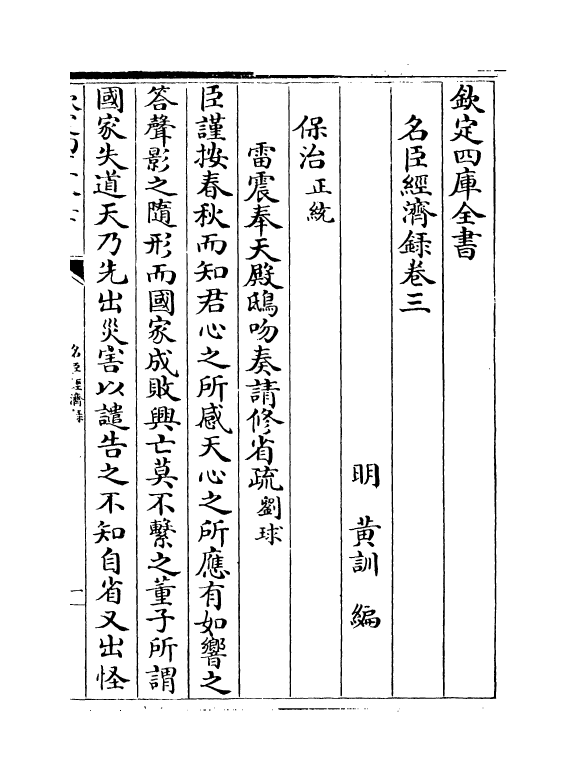 欽定四庫全書
名臣經濟録卷三
明 黃訓 編
保治 正統
雷震奉天殿鴟吻奏請修省疏 劉球
臣謹按春秋而知君心之所感天心之所應有如響之
答聲影之隨形而國家成敗興亡莫不繫之董子所謂
國家失道天乃先出災害以譴告之不知自省又出怪
名臣經濟録